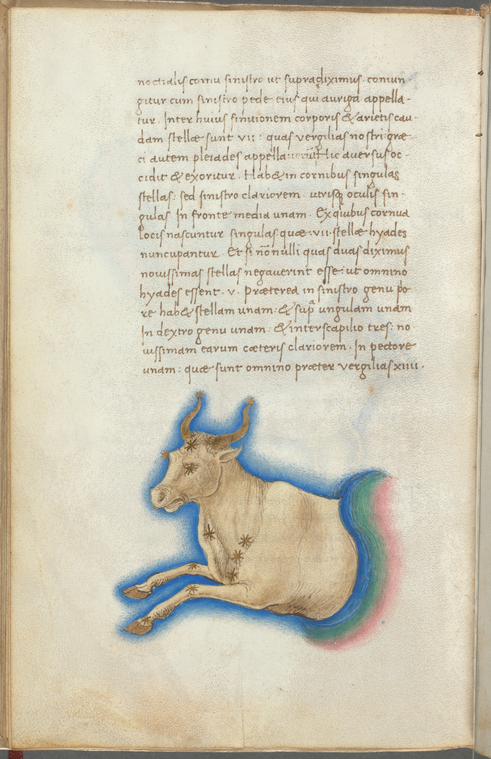 noctialis cornu sinistro ut supra diximus. coniun
gitur cum sinistro pede eius qui auriga appella-
tur. Inter huius finitionem corporis & arietis cau
dam stellæ sunt vii: quas vergilias nostri græ-
ci autem pleiades appellauerunt. Hic auersus oc-
cidit & exoritur. Habet in cornibus singulas
stellas: sed sinistro clariorem. utrisq; oculis sin-
gulas. In fronte media unam. Ex quibus cornua
locis nascuntur singulas quæ .vii. stellæ hyades
nuncupantur. Et si nōnulli quas duas diximus
nouissimas stellas negauerint esse: ut omnino
hyades essent .v. Præterea in sinistro genu po-
re habet stellam unam: & sup̄ ungulam unam
In dextro genu unam. & interscapilio tres: no
uissimam earum cæteris clariorem. In pectore
unam: quæ sunt omnino præter vergilias xiiii.